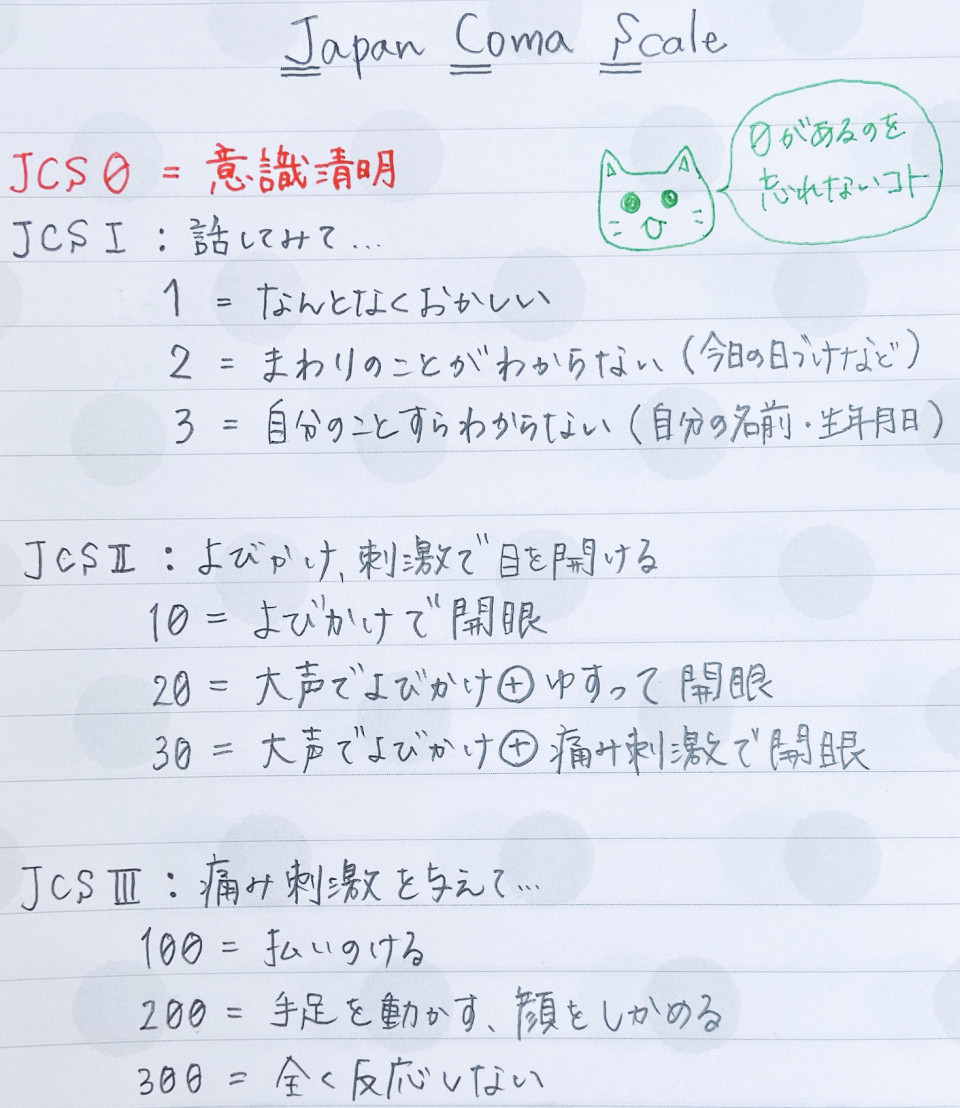 Japan Coma Scale
JCS 0 = 意識清明
0があるのを
忘れないコト
JCS Ⅰ : 話してみて…
1 = なんとなくおかしい
2 = まわりのことがわからない (今日の日づけなど)
3 = 自分のことすらわからない (自分の名前・生年月日)
JCS Ⅱ : よびかけ、刺激で目を開ける
10 = よびかけで開眼
20 = 大声でよびかけ⊕ゆすって開眼
30 = 大声でよびかけ⊕痛み刺激で開眼
JCS Ⅲ : 痛み刺激を与えて…
100 = 払いのける
200 = 手足を動かす、顔をしかめる
300 = 全く反応しない